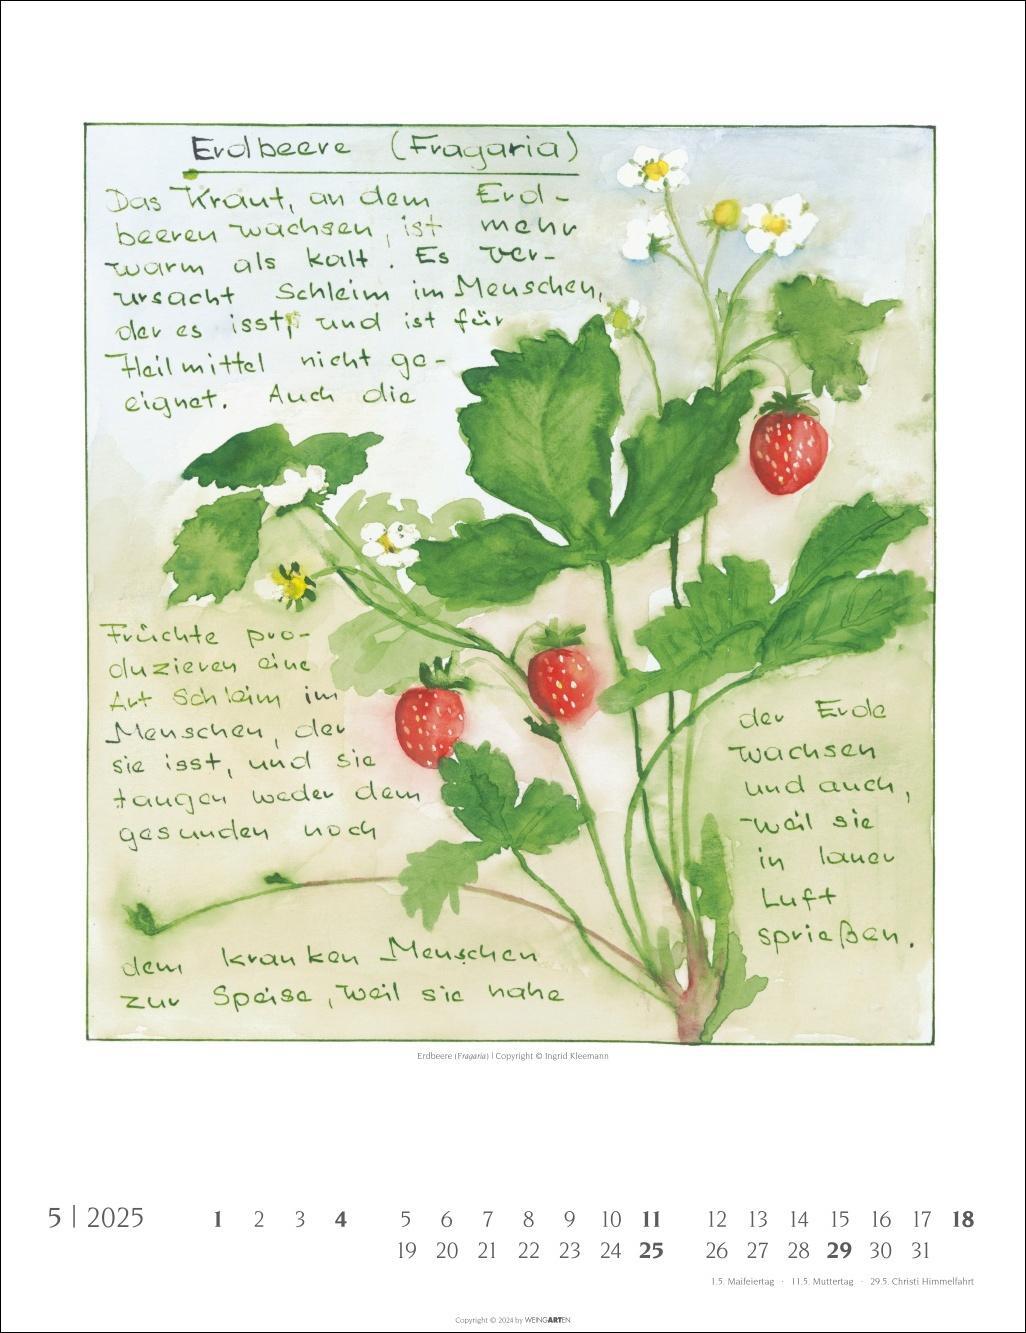 Erdbeere (Fragaria)
Das Kraut, an dem Erd-
beeren wachsen, ist mehr
warm als kalt. Es ver-
ursacht Schleim im Menschen,
der es isst, und ist für
Heilmittel nicht ge-
eignet. Auch die
Früchte pro-
duzieren eine
Art Schleim im
Menschen, der
sie isst, und sie
taugen weder dem
gesunden noch
dem kranken Menschen
zur Speise, weil sie nahe
der Erde
wachsen
und auch,
weil sie
in lauer
Luft
sprießen.
Erdbeere (Fragaria) | Copyright © Ingrid Kleemann
5 | 2025 1 2 3 4 5 6 7 8 9 10 11 12 13 14 15 16 17 18
19 20 21 22 23 24 25 26 27 28 29 30 31
1.5. Maifeiertag · 11.5. Muttertag · 29.5. Christi Himmelfahrt
Copyright © 2024 by WEINGARTEN